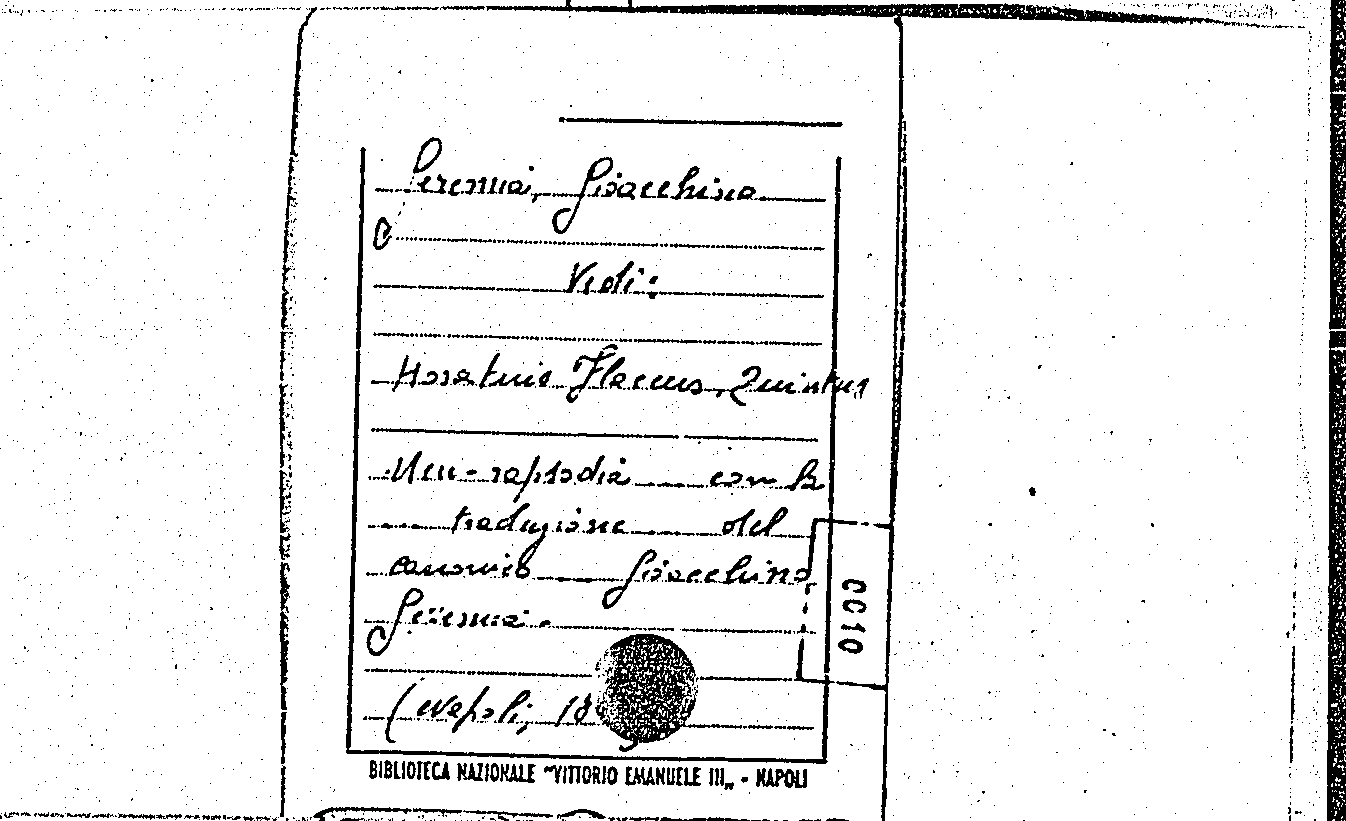 Geremia, Gioacchino
Vedi:
Horatius Flaccus, Quintus
con la
traduzione del
canonico Gioacchino
Geremia.
(Napoli, 18
0010
BIBLIOTECA NAZIONALE "VITTORIO EMANUELE III„ - NAPOLI